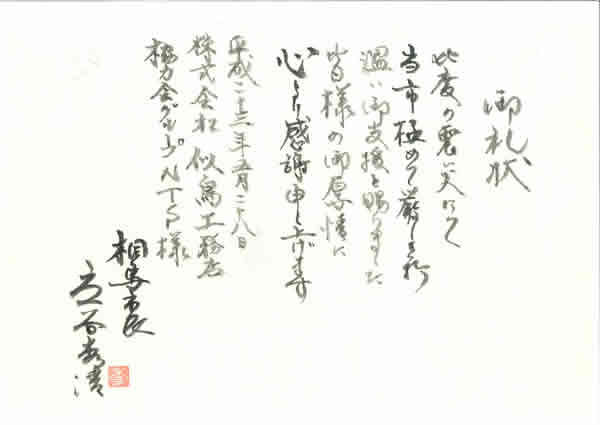 御礼状
此度の震災にて
当市極めて厳しき折
温い御支援を賜りました
皆様の御厚情に
心より感謝申し上げます
平成二十三年五月二十八日
株式会社 似鳥工務店
協力会グループNTSP様
相馬市長
立谷秀清